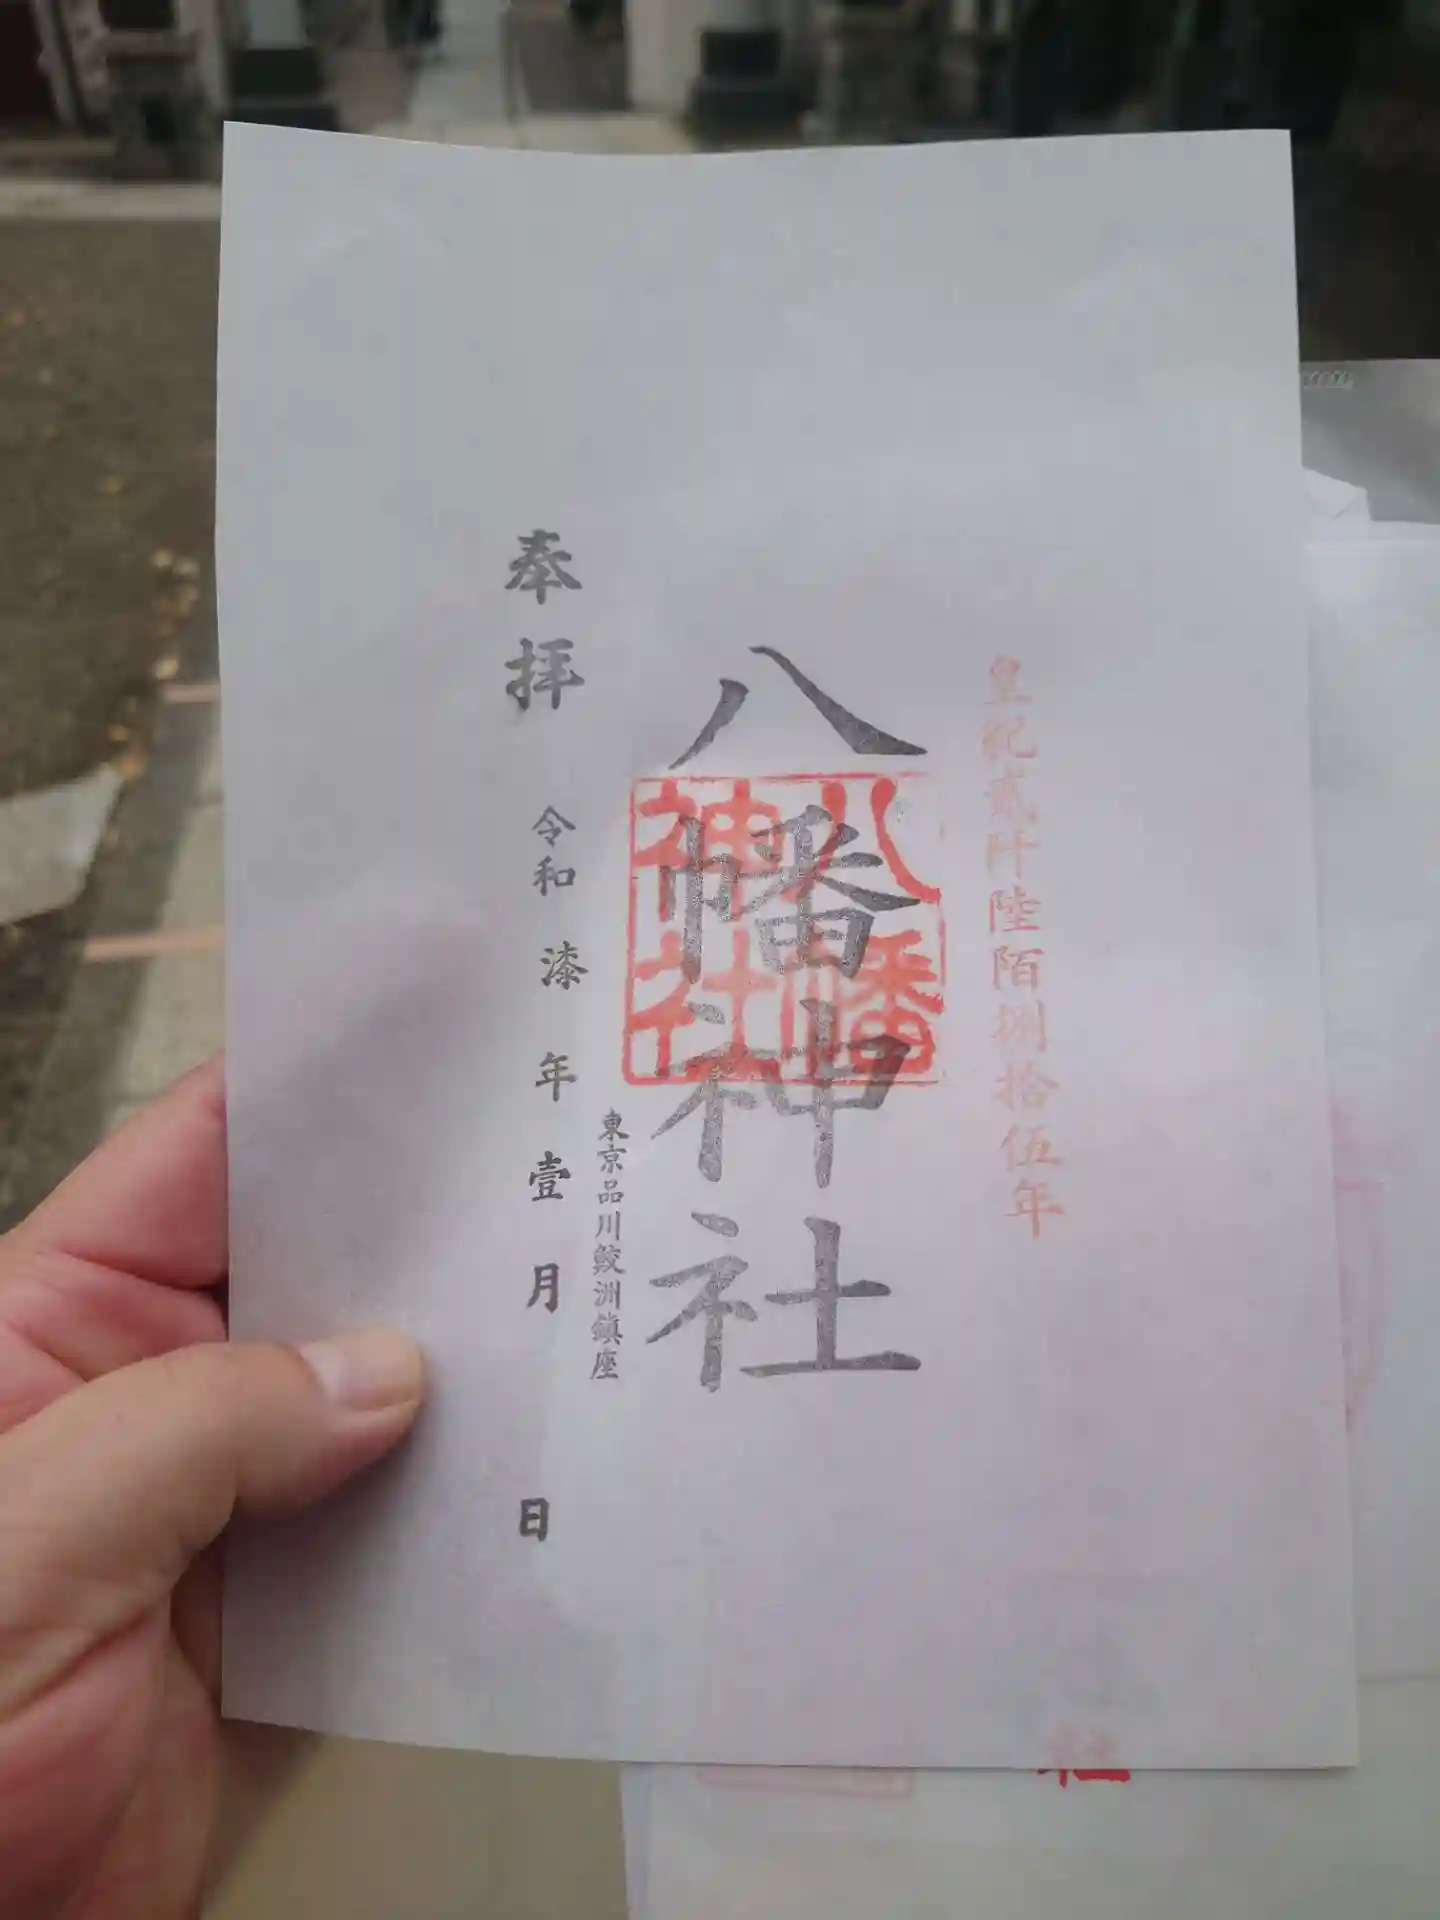 皇紀貳阡陸陌捌拾伍年
八幡神社
八幡
神社
東京品川鮫洲鎮座
奉拝
令和漆年壹月 日
社